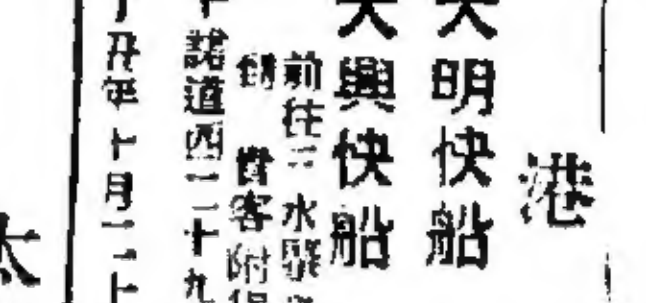 港
大明快船
大興快船
前往三水
貴客附
諾道西二十九
丑年十月二十
太